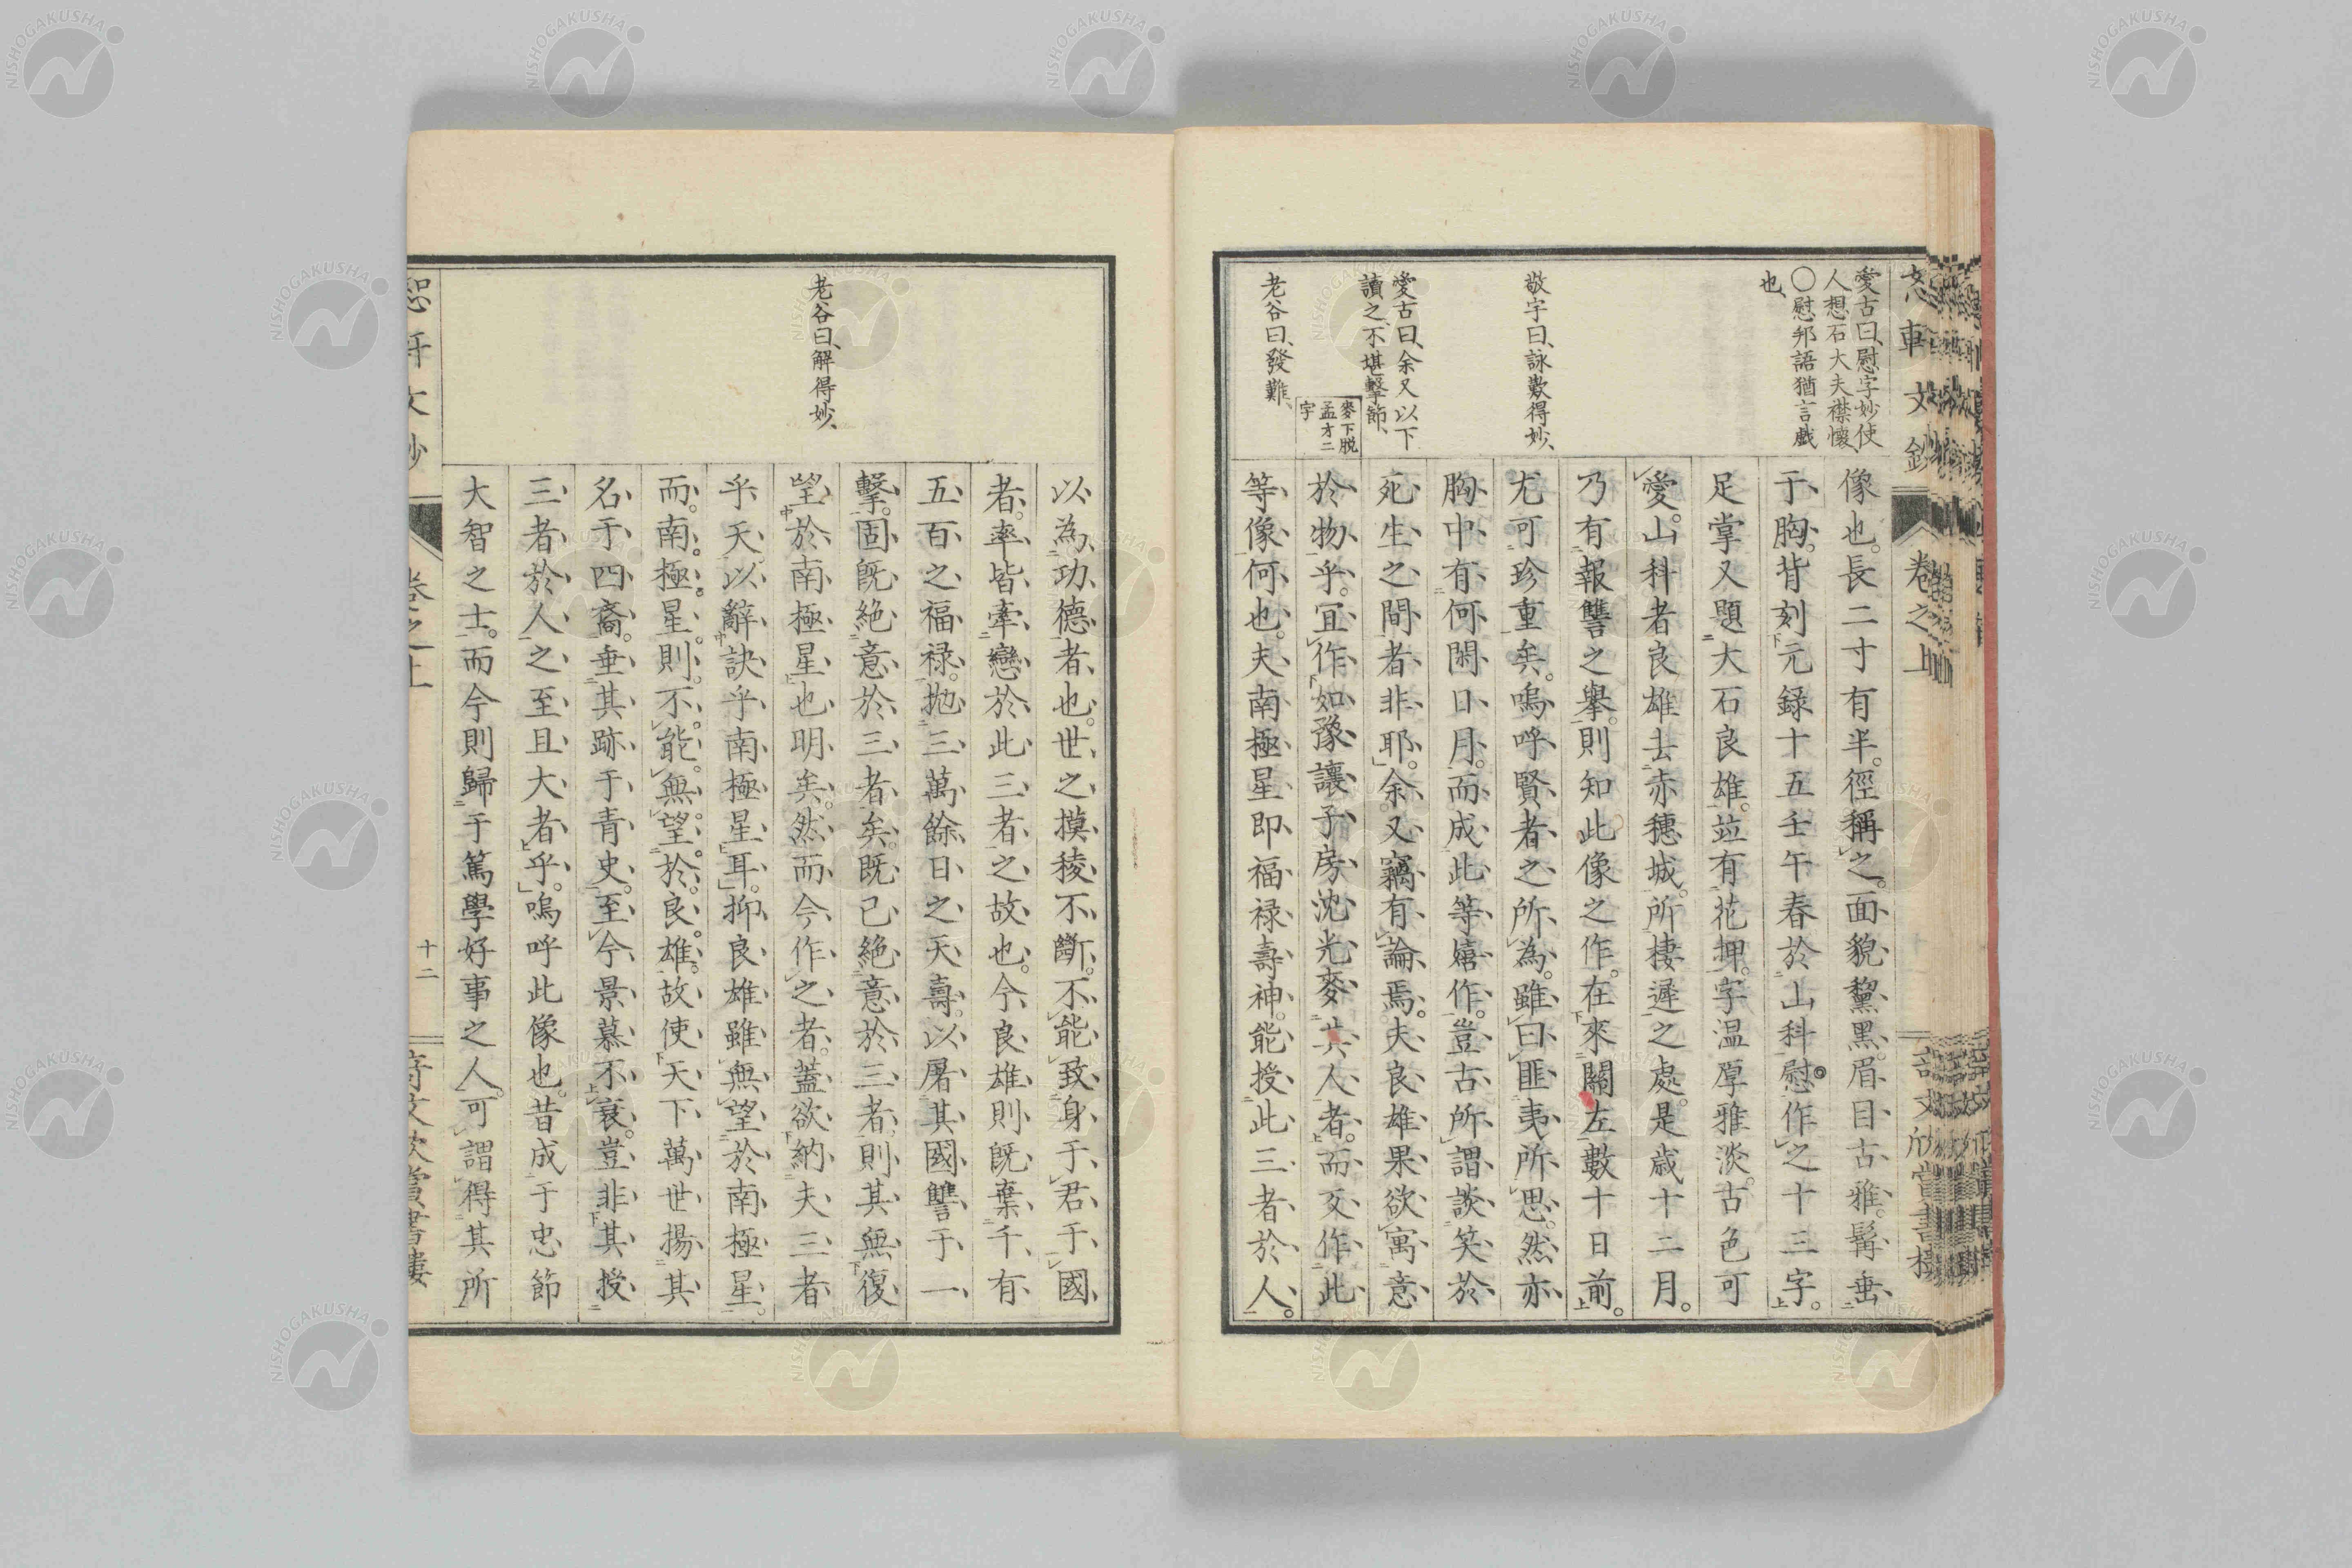 愛古曰、慰字妙使
人想石大夫襟懷、
〇慰邦語猶言戲
也、
敬宇曰、詠歎得妙、
愛古曰、余又以下
讀之、不堪擊節、
麥下脱
孟才二
字
老谷曰、發難、
像也。長二寸有半。徑稱之。面貌黧黑。眉目古雅。髯垂
于胸。背刻元録十五壬午春於山科慰作之十三字。
足掌又題大石良雄。竝有花押。字温厚雅淡。古色可
愛。山科者良雄去赤穗城。所棲遲之處。是歲十二月。
乃有報讐之擧。則知此像之作。在來關左數十日前。
尤可珍重矣。嗚呼賢者之所爲。雖曰匪夷所思。然亦
胸中有何閑日月。而成此等嬉作。豈古所謂談笑於
死生之間者非耶。余又竊有論焉。夫良雄果欲寓意
於物乎。宜作如豫讓子房沈光麥其人者。而反作此
等像何也。夫南極星即福禄壽神。能授此三者於人。
老谷曰、解得妙、
以為功德者也。世之摸稜不斷。不能致身于君于國
者。率皆牽戀於此三者之故也。今良雄則既棄千有
五百之福禄。抛三萬餘日之天壽。以屠其國讐于一
擊。固既絶意於三者矣。既已絶意於三者。則其無復
望於南極星也明矣。然而今作之者。蓋欲納夫三者
乎天。以辭訣乎南極星耳。抑良雄雖無望於南極星。
而南極星。則不能無望於良雄。故使天下萬世揚其
名于四裔。垂其跡于青史。至今景慕不衰。豈非其授
三者於人之至且大者乎。嗚呼此像也。昔成于忠節
大智之士。而今則歸于篤學好事之人。可謂得其所
卷之上
十二